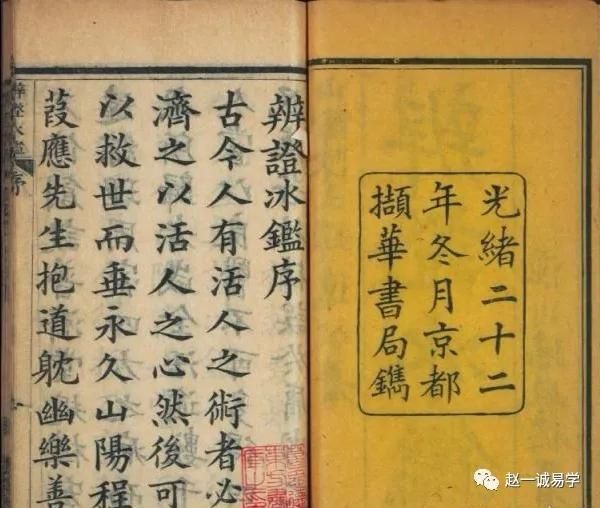 光緒二十二
年冬月京都
擷華書局鐫
辨證冰鑑序
古今人有活人之術者必
濟之以活人之心然後可
以救世而垂永久山陽程
葭應先生抱道躭幽樂善
赵一诚易学